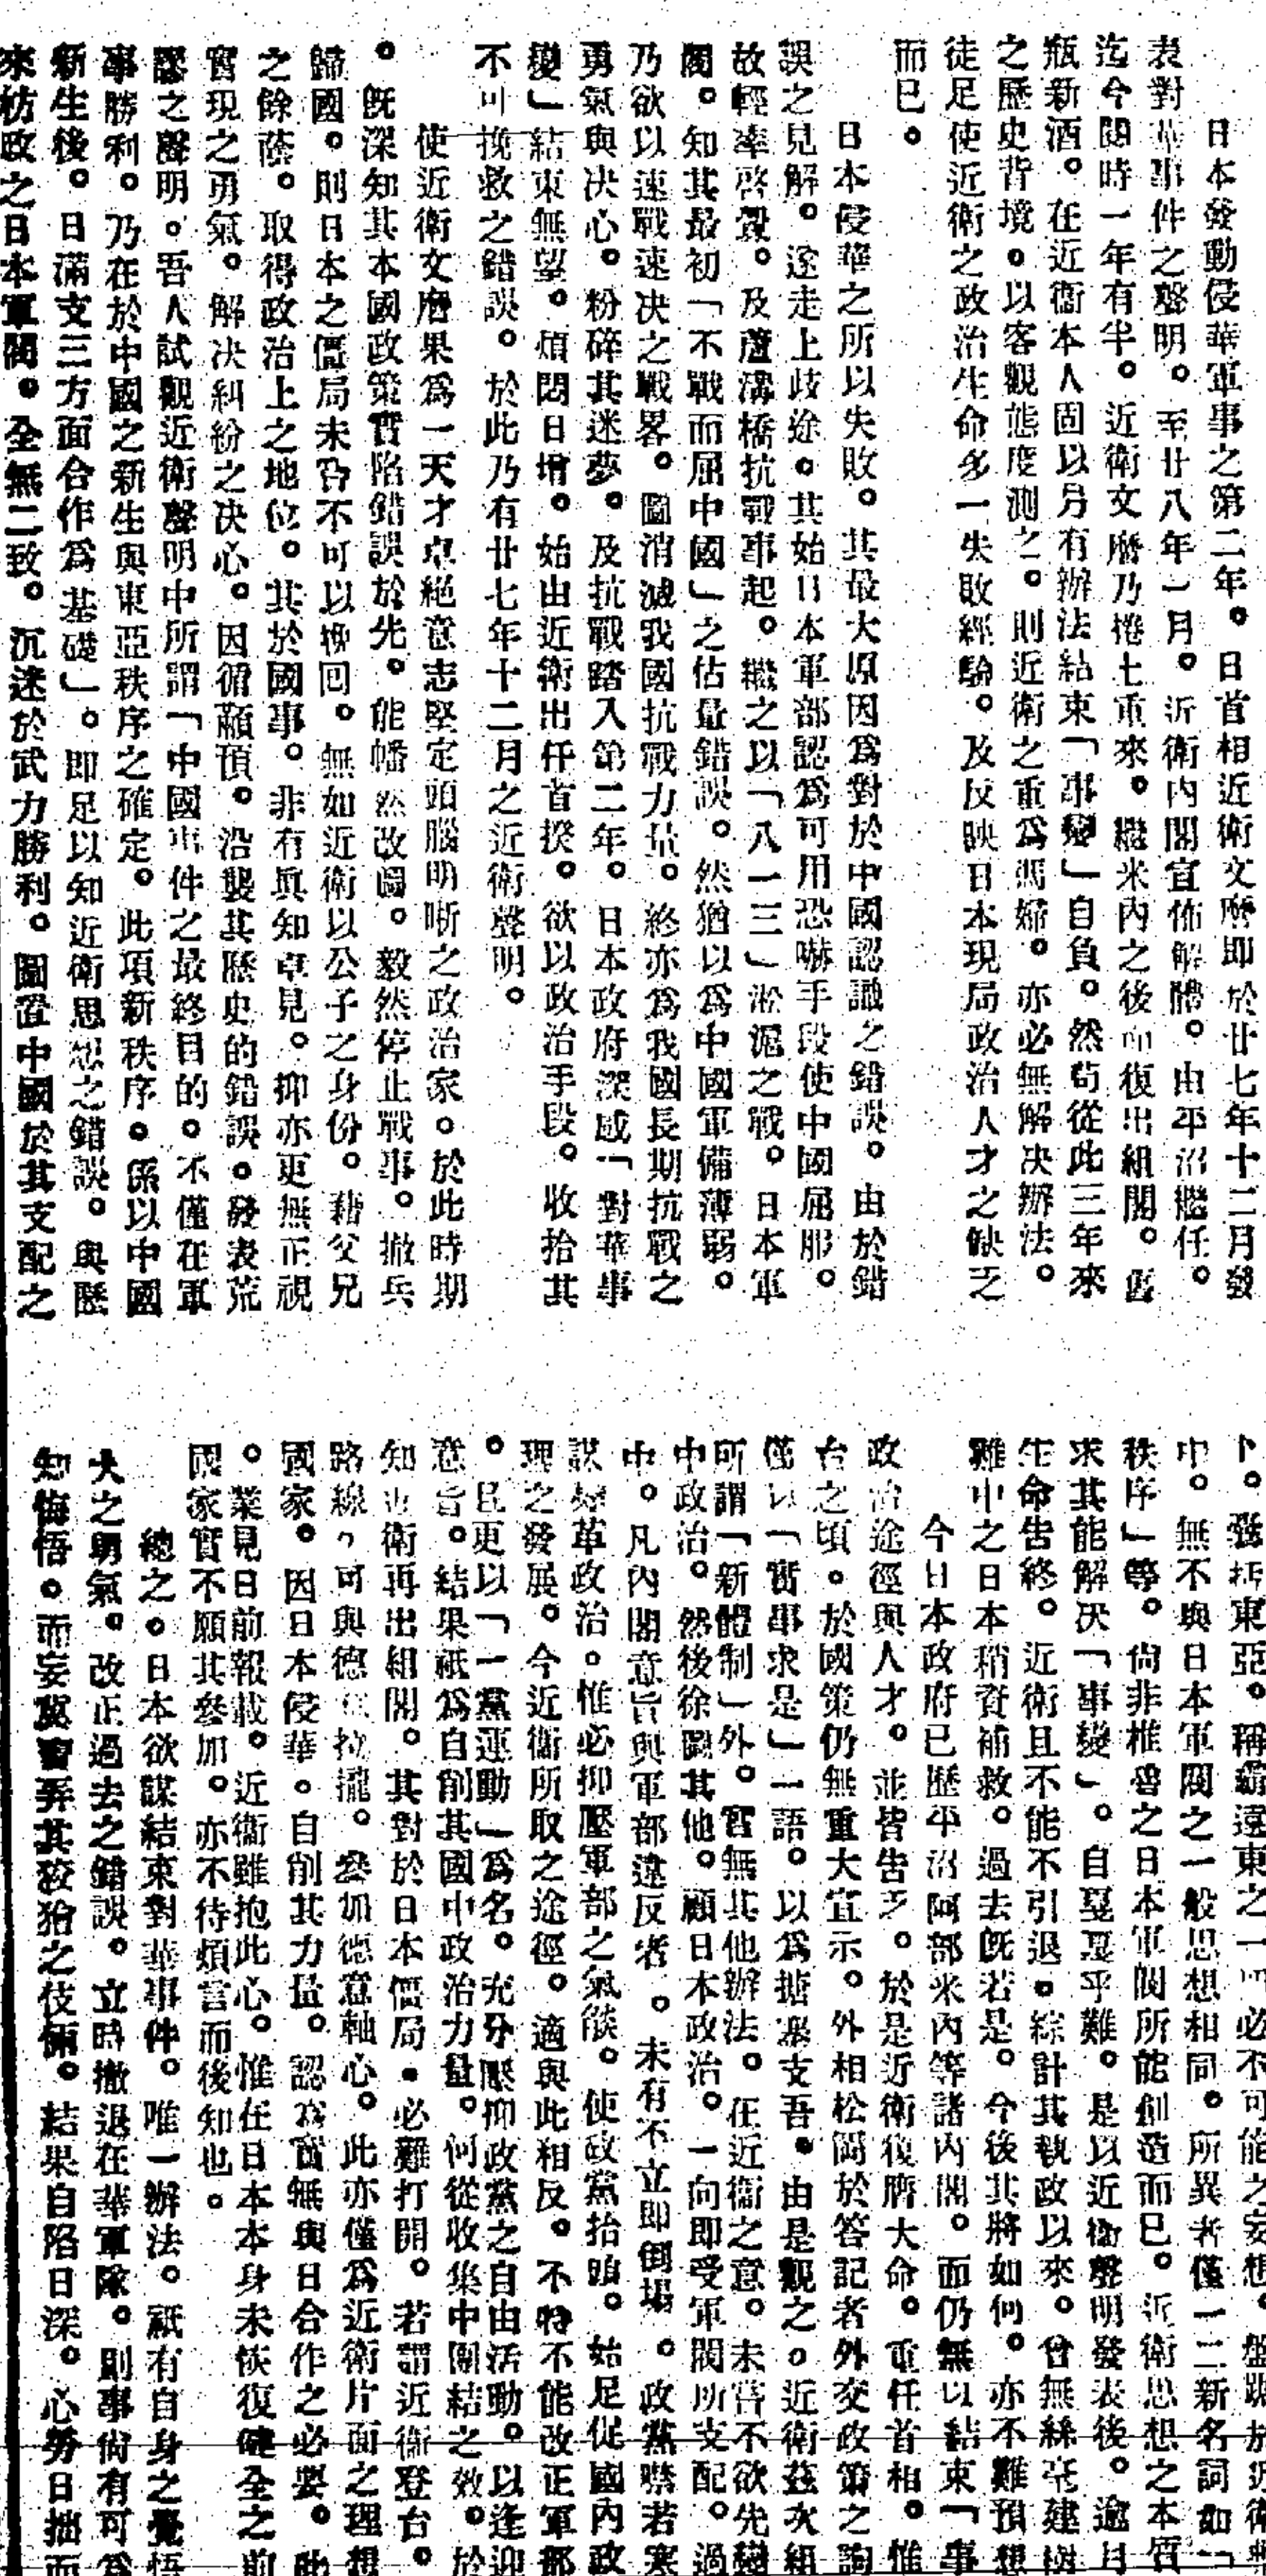 日本發動侵華軍事之第二年。日首相近衛文麿即於廿七年十二月發
表對華事件之聲明。至廿八年一月。近衛內閣宣佈解體。由平沼繼任。
迄今閱時一年有半。近衛文麿乃捲土重來。繼米內之後而復出組閣。舊
瓶新酒。在近衞本人固以另有辦法結束「事變」自負。然苟從此三年來
之歷史背境。以客觀態度測之。則近衛之重為馮婦。亦必無解决辦法。
徒足使近衛之政治生命多一失敗經驗。及反映日本現局政治人才之缺乏
而已。
日本侵華之所以失敗。其最大原因為對於中國認識之錯誤。由於錯
誤之見解。遂走上歧途。其始日本軍部認爲可用恐嚇手段使中國屈服。
故輕率啓釁。及蘆溝橋抗戰事起。繼之以「八一三」淞滬之戰。日本軍
閥。知其最初「不戰而屈中國」之估量錯誤。然猶以爲中國軍備薄弱。
乃欲以速戰速决之戰畧。圖消滅我國抗戰力量。終亦為我國長期抗戰之
勇氣與决心。粉碎其迷夢。及抗戰踏入第二年。日本政府深感「對華事
變」結束無望。煩悶日增。始由近衛出任首揆。欲以政治手段。收拾其
不可挽救之錯誤。於此乃有廿七年十二月之近衛聲明。
使近衛文麿果爲一天才卓絕意志堅定頭腦明晰之政治家。於此時期
。旣深知其本國政策實陷錯誤於先。能幡然改圖。毅然停止戰事。撤兵
歸國。則日本之僵局未嘗不可以挽回。無如近衛以公子之身份。藉父兄
之餘蔭。取得政治上之地位。其於國事。非有眞知卓見。抑亦更無正視
實現之勇氣。解决糾紛之决心。因循顢頇。沿襲其歷史的錯誤。發表荒
謬之聲明。吾人試觀近衛聲明中所謂「中國事件之最終目的。不僅在軍
事勝利。乃在於中國之新生與東亞秩序之確定。此項新秩序。係以中國
新生後。日滿支三方面合作爲基礎」。即足以知近衛思想之錯誤。與歷
來枋政之日本軍閥。全無二致。沉迷於武力勝利。圖置中國於其支配之
下。發括東亞。稱霸遠東之一必不可能之妄想。盤踞於近衛
中。無不與日本軍閥之一般思想相同。所異者僅一二新名詞如「
秩序」等。尙非椎魯之日本軍閥所能創造而已。近衛思想之本質
求其能解决「事變」。自戞戞乎難。是以近衛聲明發表後。逾月
生命吿終。近衛且不能不引退。綜計其執政以來。曾無絲毫建樹
難中之日本稍資補救。過去旣若是。今後其將如何。亦不難預想
今日本政府已歷平沼阿部米內等諸內閣。而仍無以結束「事
政治途徑與人才。並皆吿乏。於是近衛復膺大命。重任首相。惟
台之頃。於國策仍無重大宣示。外相松岡於答記者外交政策之詢
僅以「實事求是」一語。以爲搪塞支吾。由是觀之。近衛茲次組
所謂「新體制」外。實無其他辦法。在近衞之意。未嘗不欲先變
中政治。然後徐圖其他。顧日本政治。一向即受軍閥所支配。過
中。凡內閣意旨與軍部違反者。未有不立即倒場。政黨噤若寒
謀變革政治。惟必抑壓軍部之氣燄。使政黨抬頭。始足促國內政
理之發展。今近衞所取之途徑。適與此相反。不特不能改正軍部
。且更以「一黨運動」爲名。充分壓抑政黨之自由活動。以逢迎
意旨。結果祇爲自削其國中政治力量。何從收集中團結之效。於
知近衛再出組閣。其對於日本僵局。必難打開。若謂近衞登台。
路線。可與德意拉攏。參加德意軸心。此亦僅爲近衛片面之理想
國家。因日本侵華。自削其力量。認爲實無與日合作之必要。此
。業見日前報載。近衞雖抱此心。惟在日本本身未恢復健全之前
國家實不願其參加。亦不待煩言而後知也。
總之。日本欲謀結束對華事件。唯一辦法。祇有自身之覺悟
大之勇氣。改正過去之錯誤。立時撤退在華軍隊。則事尙有可爲
知悔悟。而妄冀嘗弄其狡獪之伎倆。結果自陷日深。心勞日拙而